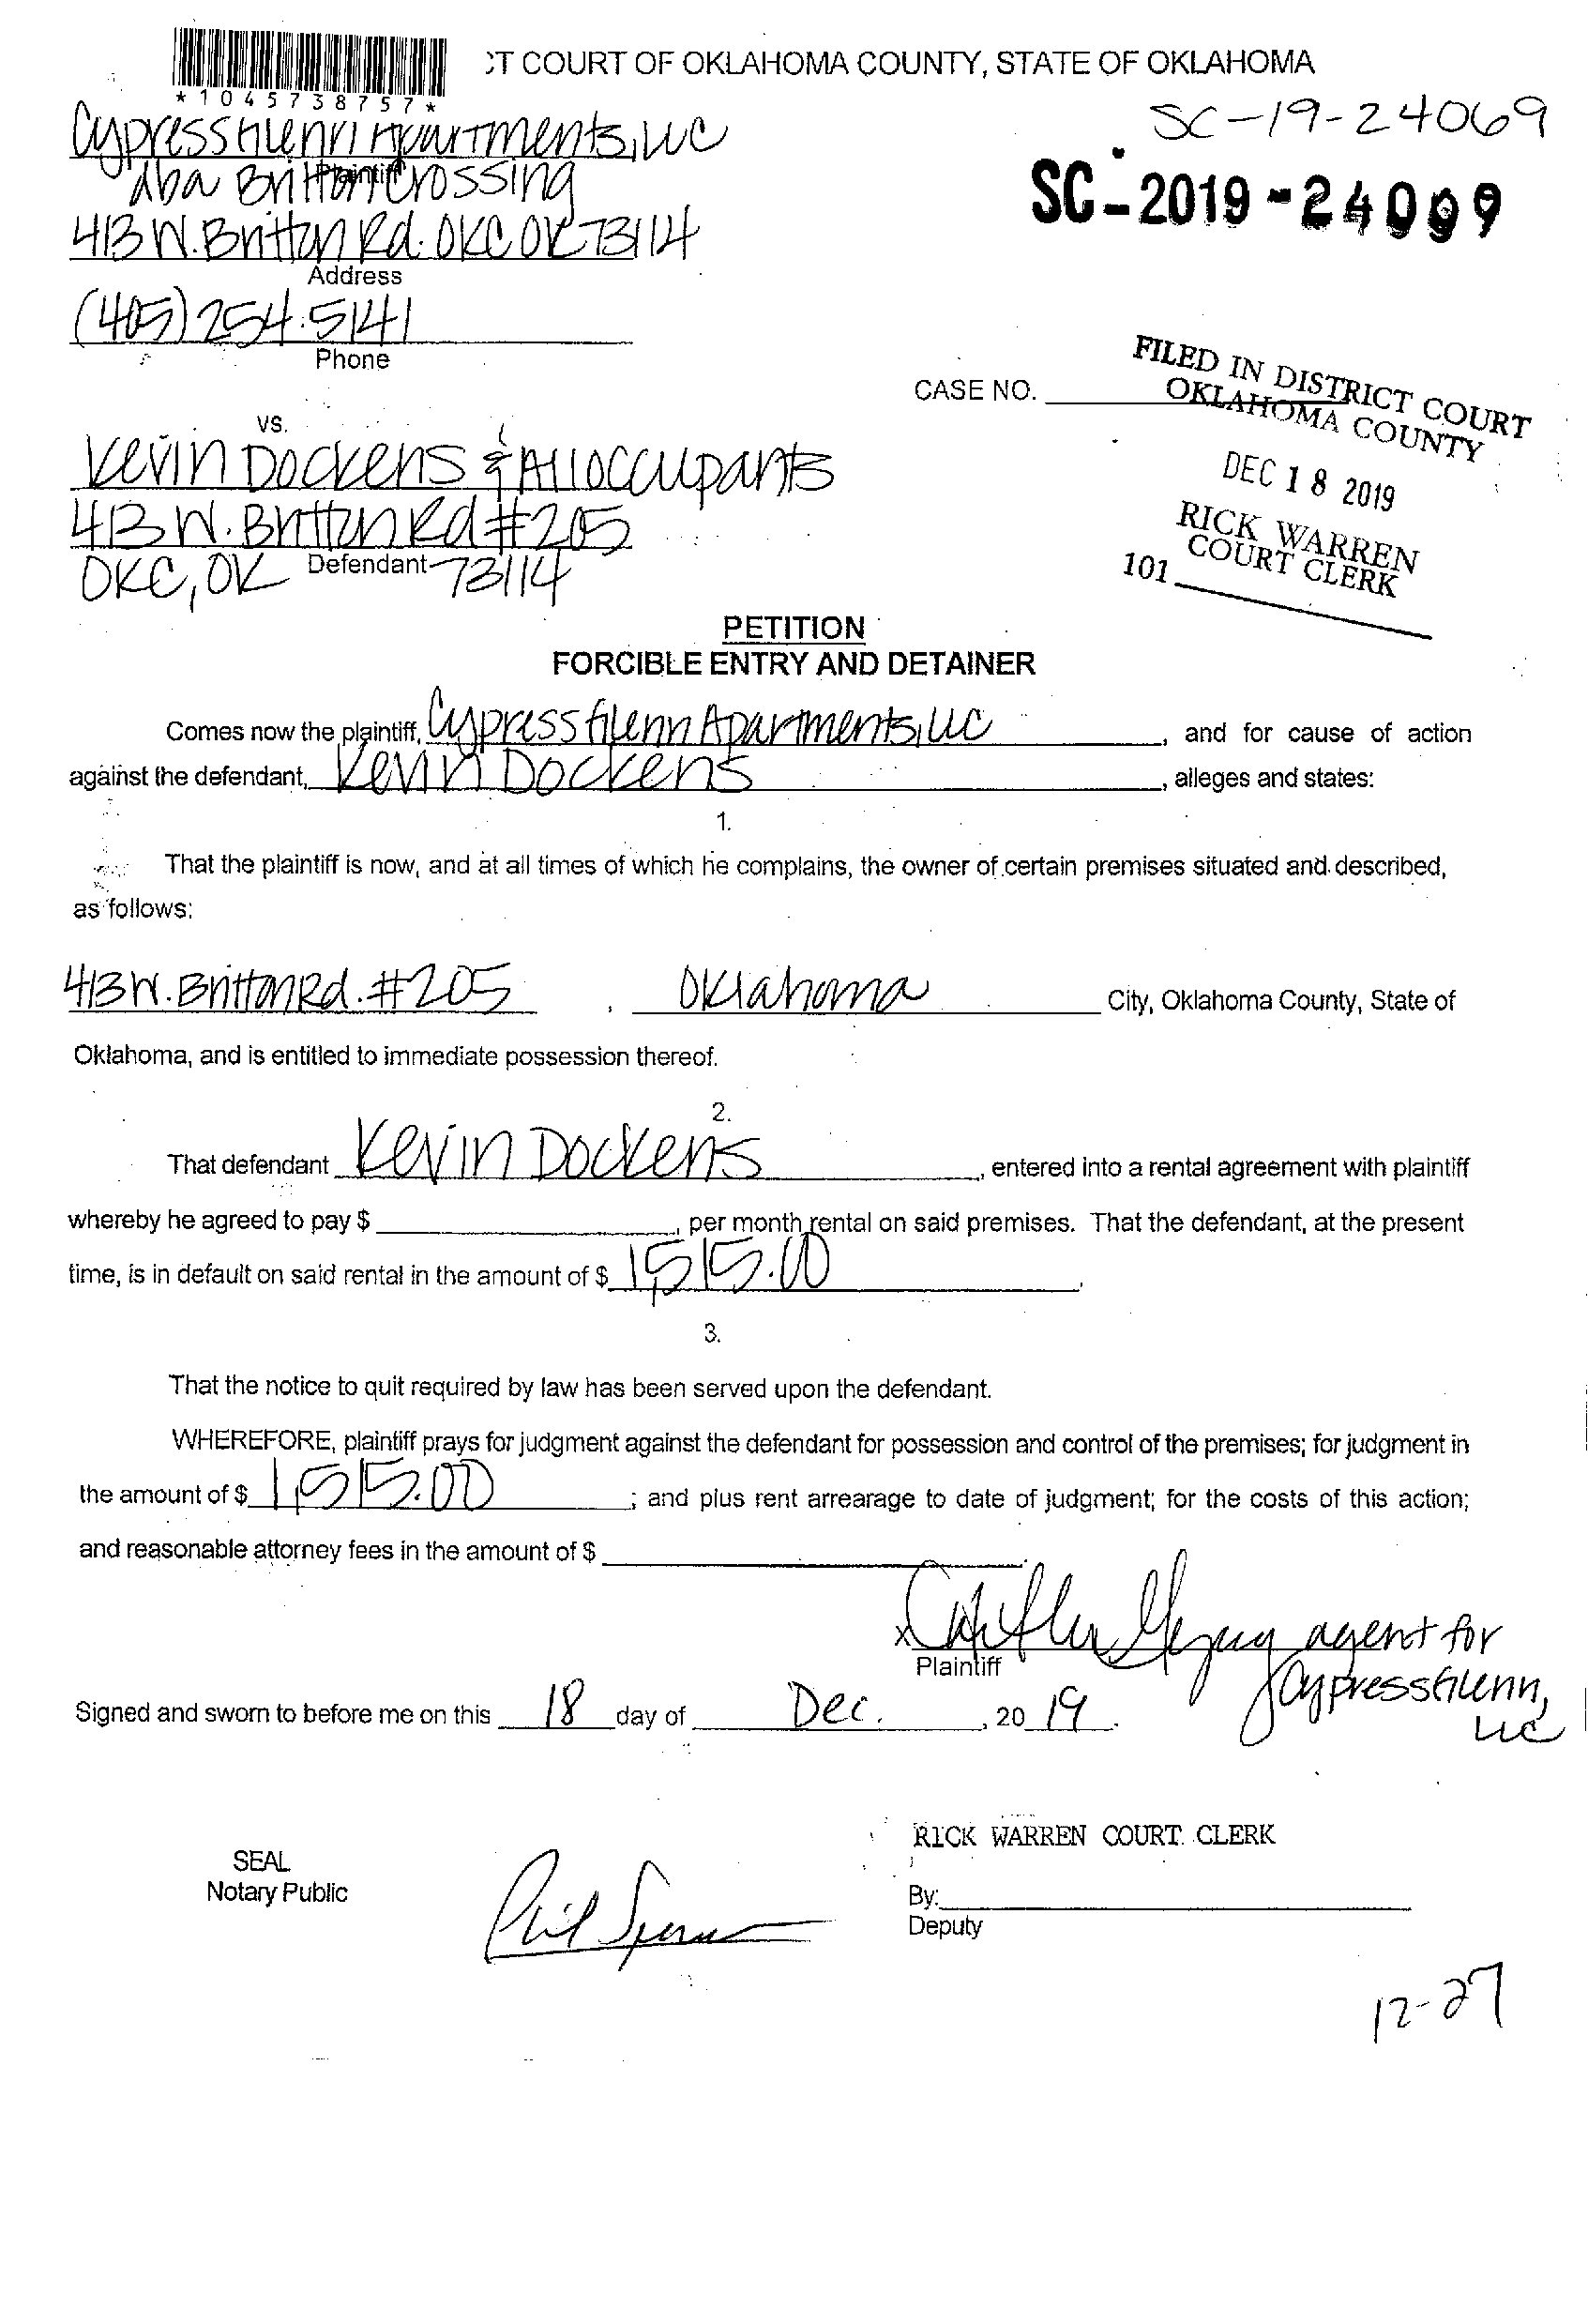 *1045738757*
CT COURT OF OKLAHOMA COUNTY, STATE OF OKLAHOMA
SC-19-24069
Cypress Glenn Apartments, LLC
Plaintiff
dba Britton Crossing
SC-2019-24069
413 W. Britton Rd. OKC OK 73114
Address
(405) 254.5141
Phone
CASE NO.
FILED IN DISTRICT COURT
OKLAHOMA COUNTY
DEC 18 2019
RICK WARREN
COURT CLERK
101
vs.
Kevin Dockens & All occupants
413 W. Britton Rd #205
OKC, OK 73114
Defendant
PETITION
FORCIBLE ENTRY AND DETAINER
Comes now the plaintiff, Cypress Glenn Apartments, LLC, and for cause of action
against the defendant, Kevin Dockens, alleges and states:
1.
That the plaintiff is now, and at all times of which he complains, the owner of certain premises situated and described,
as follows:
413 W. Britton Rd. #205, Oklahoma City, Oklahoma County, State of
Oklahoma, and is entitled to immediate possession thereof.
2.
That defendant Kevin Dockens, entered into a rental agreement with plaintiff
whereby he agreed to pay $, per month rental on said premises. That the defendant, at the present
time, is in default on said rental in the amount of $ 1,515.00.
3.
That the notice to quit required by law has been served upon the defendant.
WHEREFORE, plaintiff prays for judgment against the defendant for possession and control of the premises; for judgment in
the amount of $ 1,515.00; and plus rent arrearage to date of judgment; for the costs of this action;
and reasonable attorney fees in the amount of $.
x agent for
Plaintiff
Cypress Glenn,
LLC
Signed and sworn to before me on this 18 day of Dec., 2019.
RICK WARREN COURT CLERK
SEAL
Notary Public
Phil
By:
Deputy
12-27